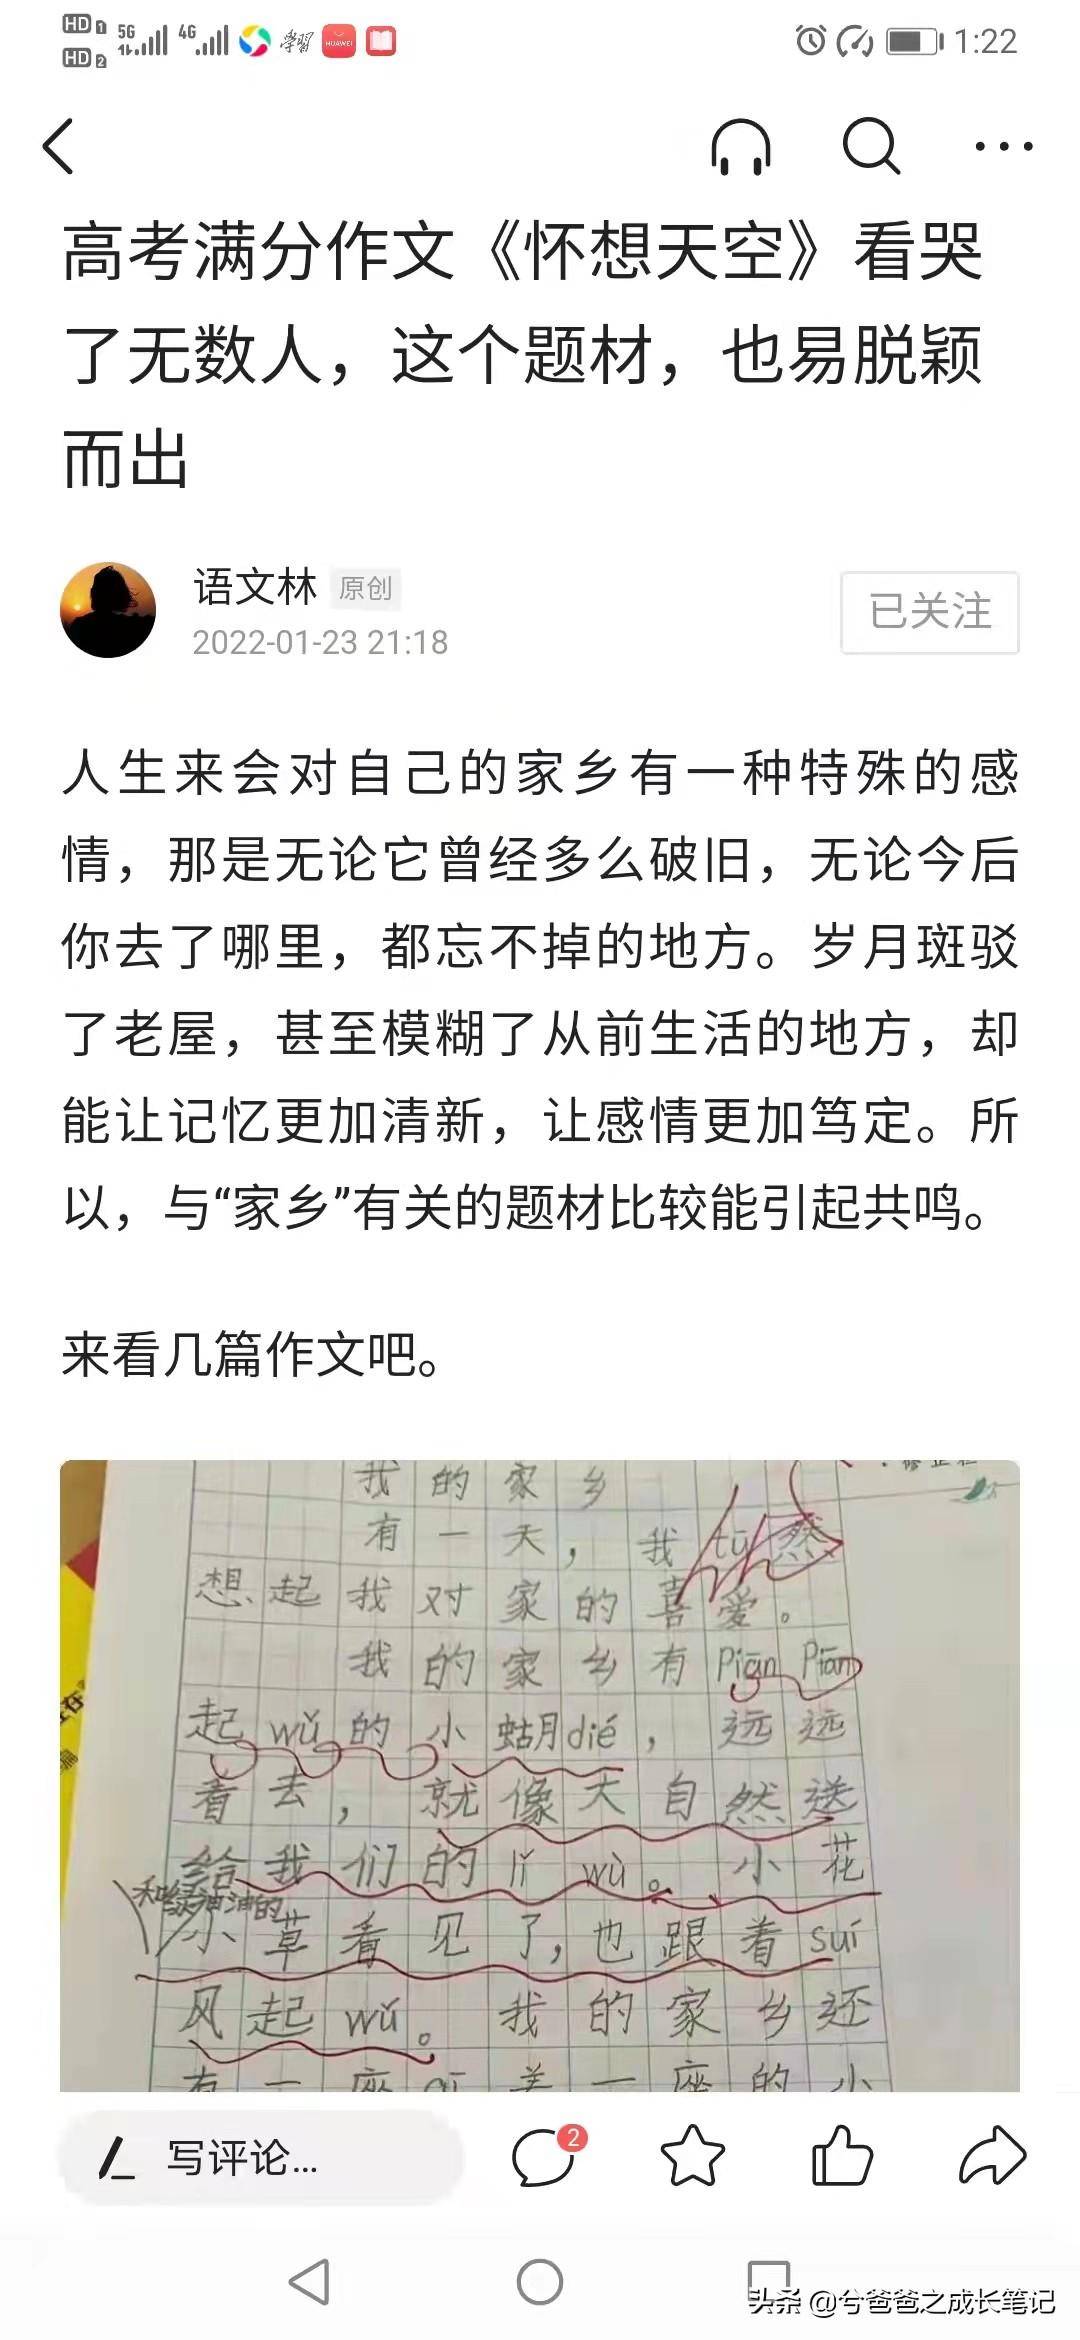 HD 1 5G 4G 学習 HUAWEI 1:22
HD 2
高考满分作文《怀想天空》看哭
了无数人，这个题材，也易脱颖
而出
语文林 原创
2022-01-23 21:18
已关注
人生来会对自己的家乡有一种特殊的感
情，那是无论它曾经多么破旧，无论今后
你去了哪里，都忘不掉的地方。岁月斑驳
了老屋，甚至模糊了从前生活的地方，却
能让记忆更加清新，让感情更加笃定。所
以，与“家乡”有关的题材比较能引起共鸣。
来看几篇作文吧。
我的家乡
有一天，我tū然
想起我对家的喜爱。
我的家乡有Piān Piān
起wǔ的小蛄月dié，远远
看去，就像大自然送
给我们的lǐ wù。小花
和绿油油的
小草看见了，也跟着suí
风起wǔ。我的家乡还
有一座 美一座的小
写评论...
2
头条 @兮爸爸之成长笔记